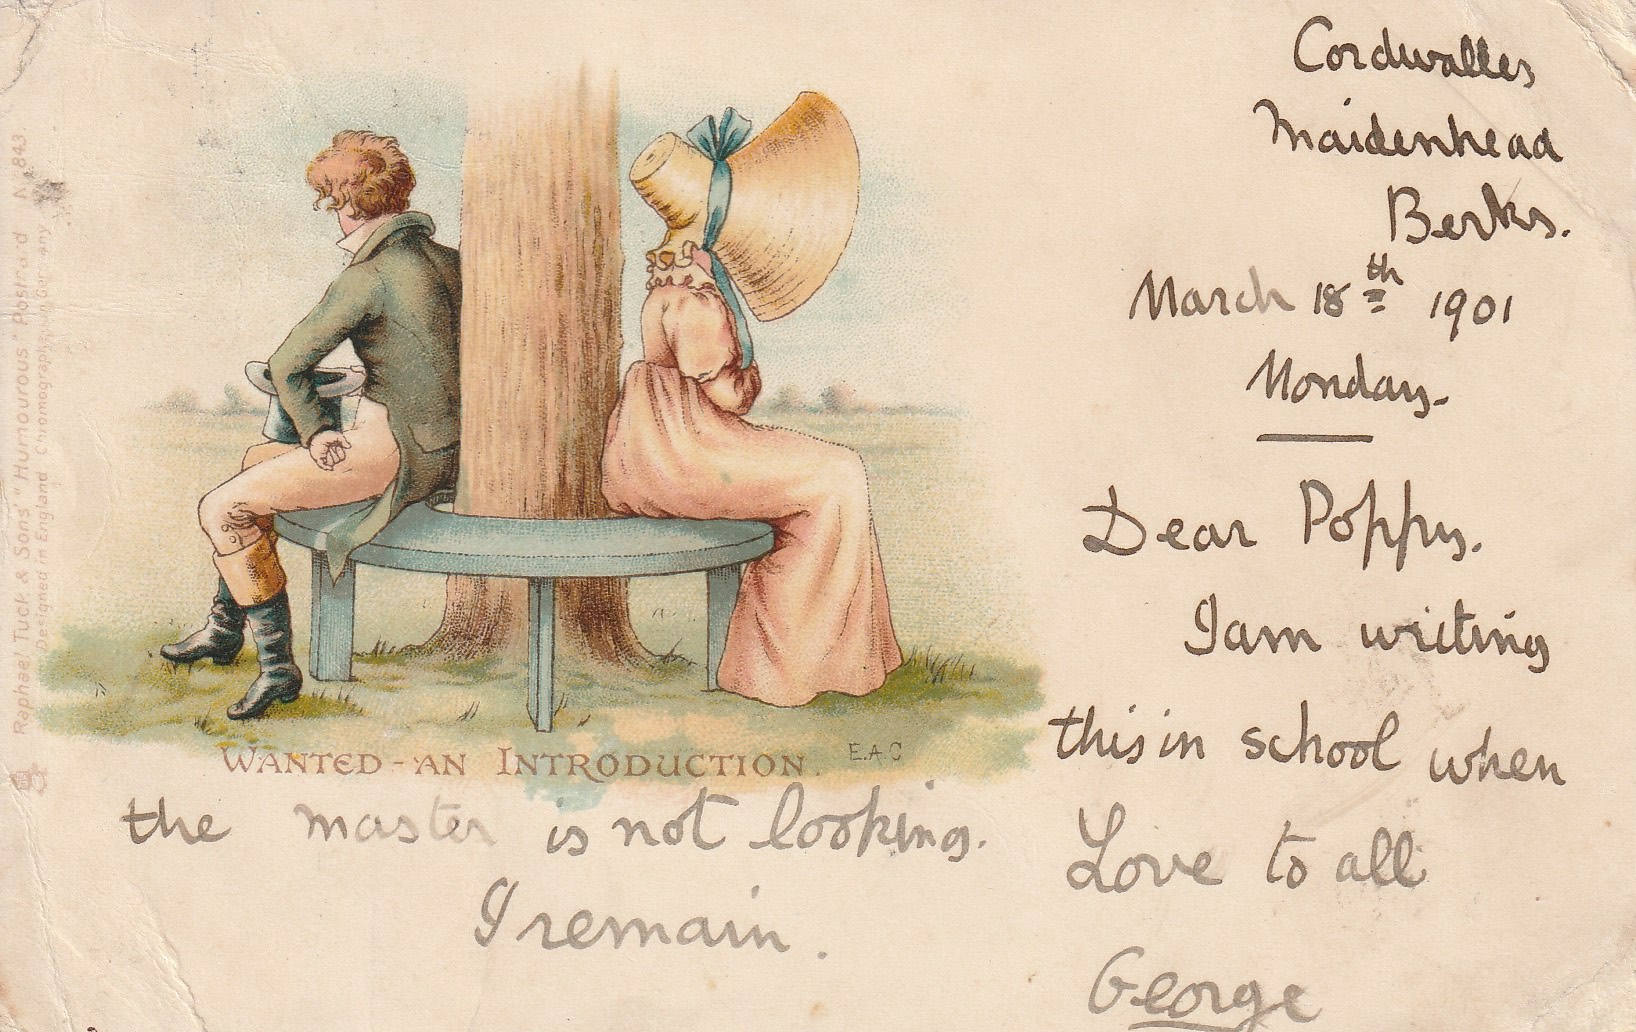 Cordwalles
Maidenhead
Berks.
March 18th 1901
Monday.
Dear Poppy.
I am writing
this in school when
the master is not looking.
I remain.
Love to all
George
WANTED - AN INTRODUCTION.
E.A.C
Raphael Tuck & Sons' "Humourous" Postcard No 843
Designed in England Chromographed in Germany